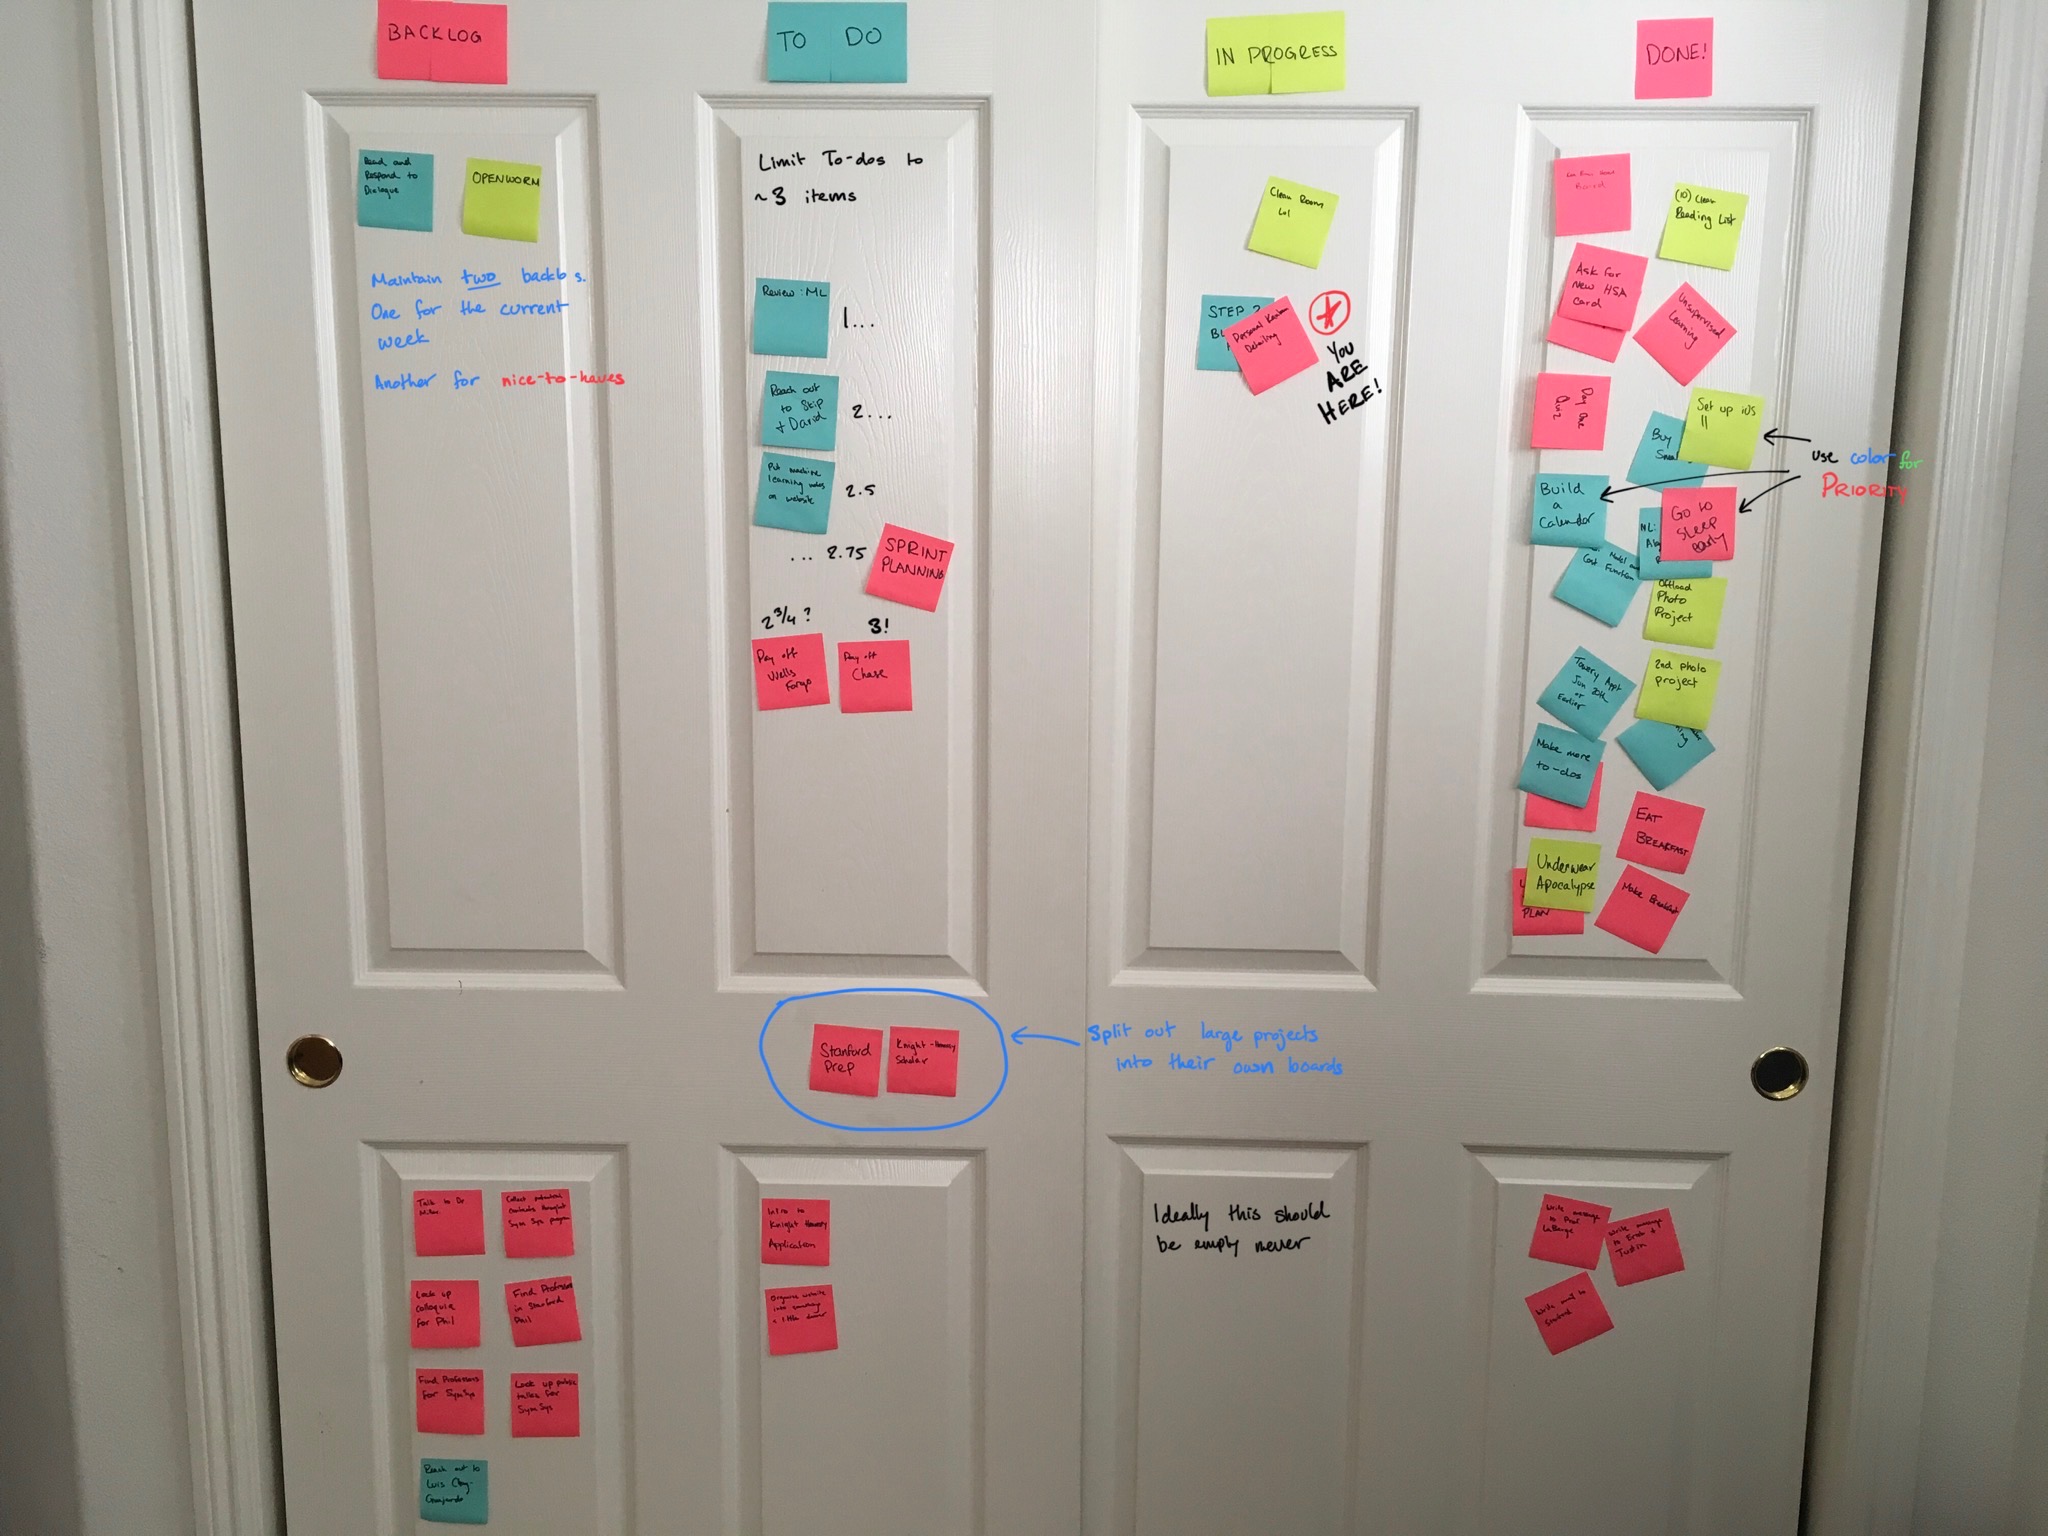 BACKLOG
TO DO
IN PROGRESS
DONE!
Read and
Respond to
Dialogue
OPENWORM
Maintain two backlogs.
One for the current
week
Another for nice-to-haves
Limit To-dos to
~3 items
Review: ML
1...
Reach out
to Skip
+ David
2...
Put machine
learning notes
on website
2.5
... 2.75
SPRINT
PLANNING
2 3/4 ?
3!
Pay off
Wells
Fargo
Pay off
Chase
Clean Room
lol
STEP 2
Personal Kanban
Detailing
YOU
ARE
HERE!
(10) Clear
Reading List
Ask for
New HSA
card
Unsupervised
Learning
Day One
Quiz
Set up iOS
11
Buy
use color for
PRIORITY
Build
a
Calendar
ML:
Go to
Sleep
early
Model and
Cost Function
Offload
Photo
Project
Appt
Jun 20th
or
Earlier
2nd photo
project
Make more
to-dos
EAT
BREAKFAST
Underwear
Apocalypse
PLAN
Make Breakfast
Stanford
Prep
Knight-Hennessy
Scholar
Split out large projects
into their own boards
Talk to Dr
Collect potential
contacts
Sym Sys program
Look up
colloquia
for Phil
Find Professors
in Stanford
Phil
Find Professors
for SymSys
Look up public
talks for
SymSys
Reach out to
Luis
Intro to
Knight Hennessy
Application
Organize website
into something
a little
Ideally this should
be empty never
Write message
to Prof
LaBarge
Write message
to
Justin
Write